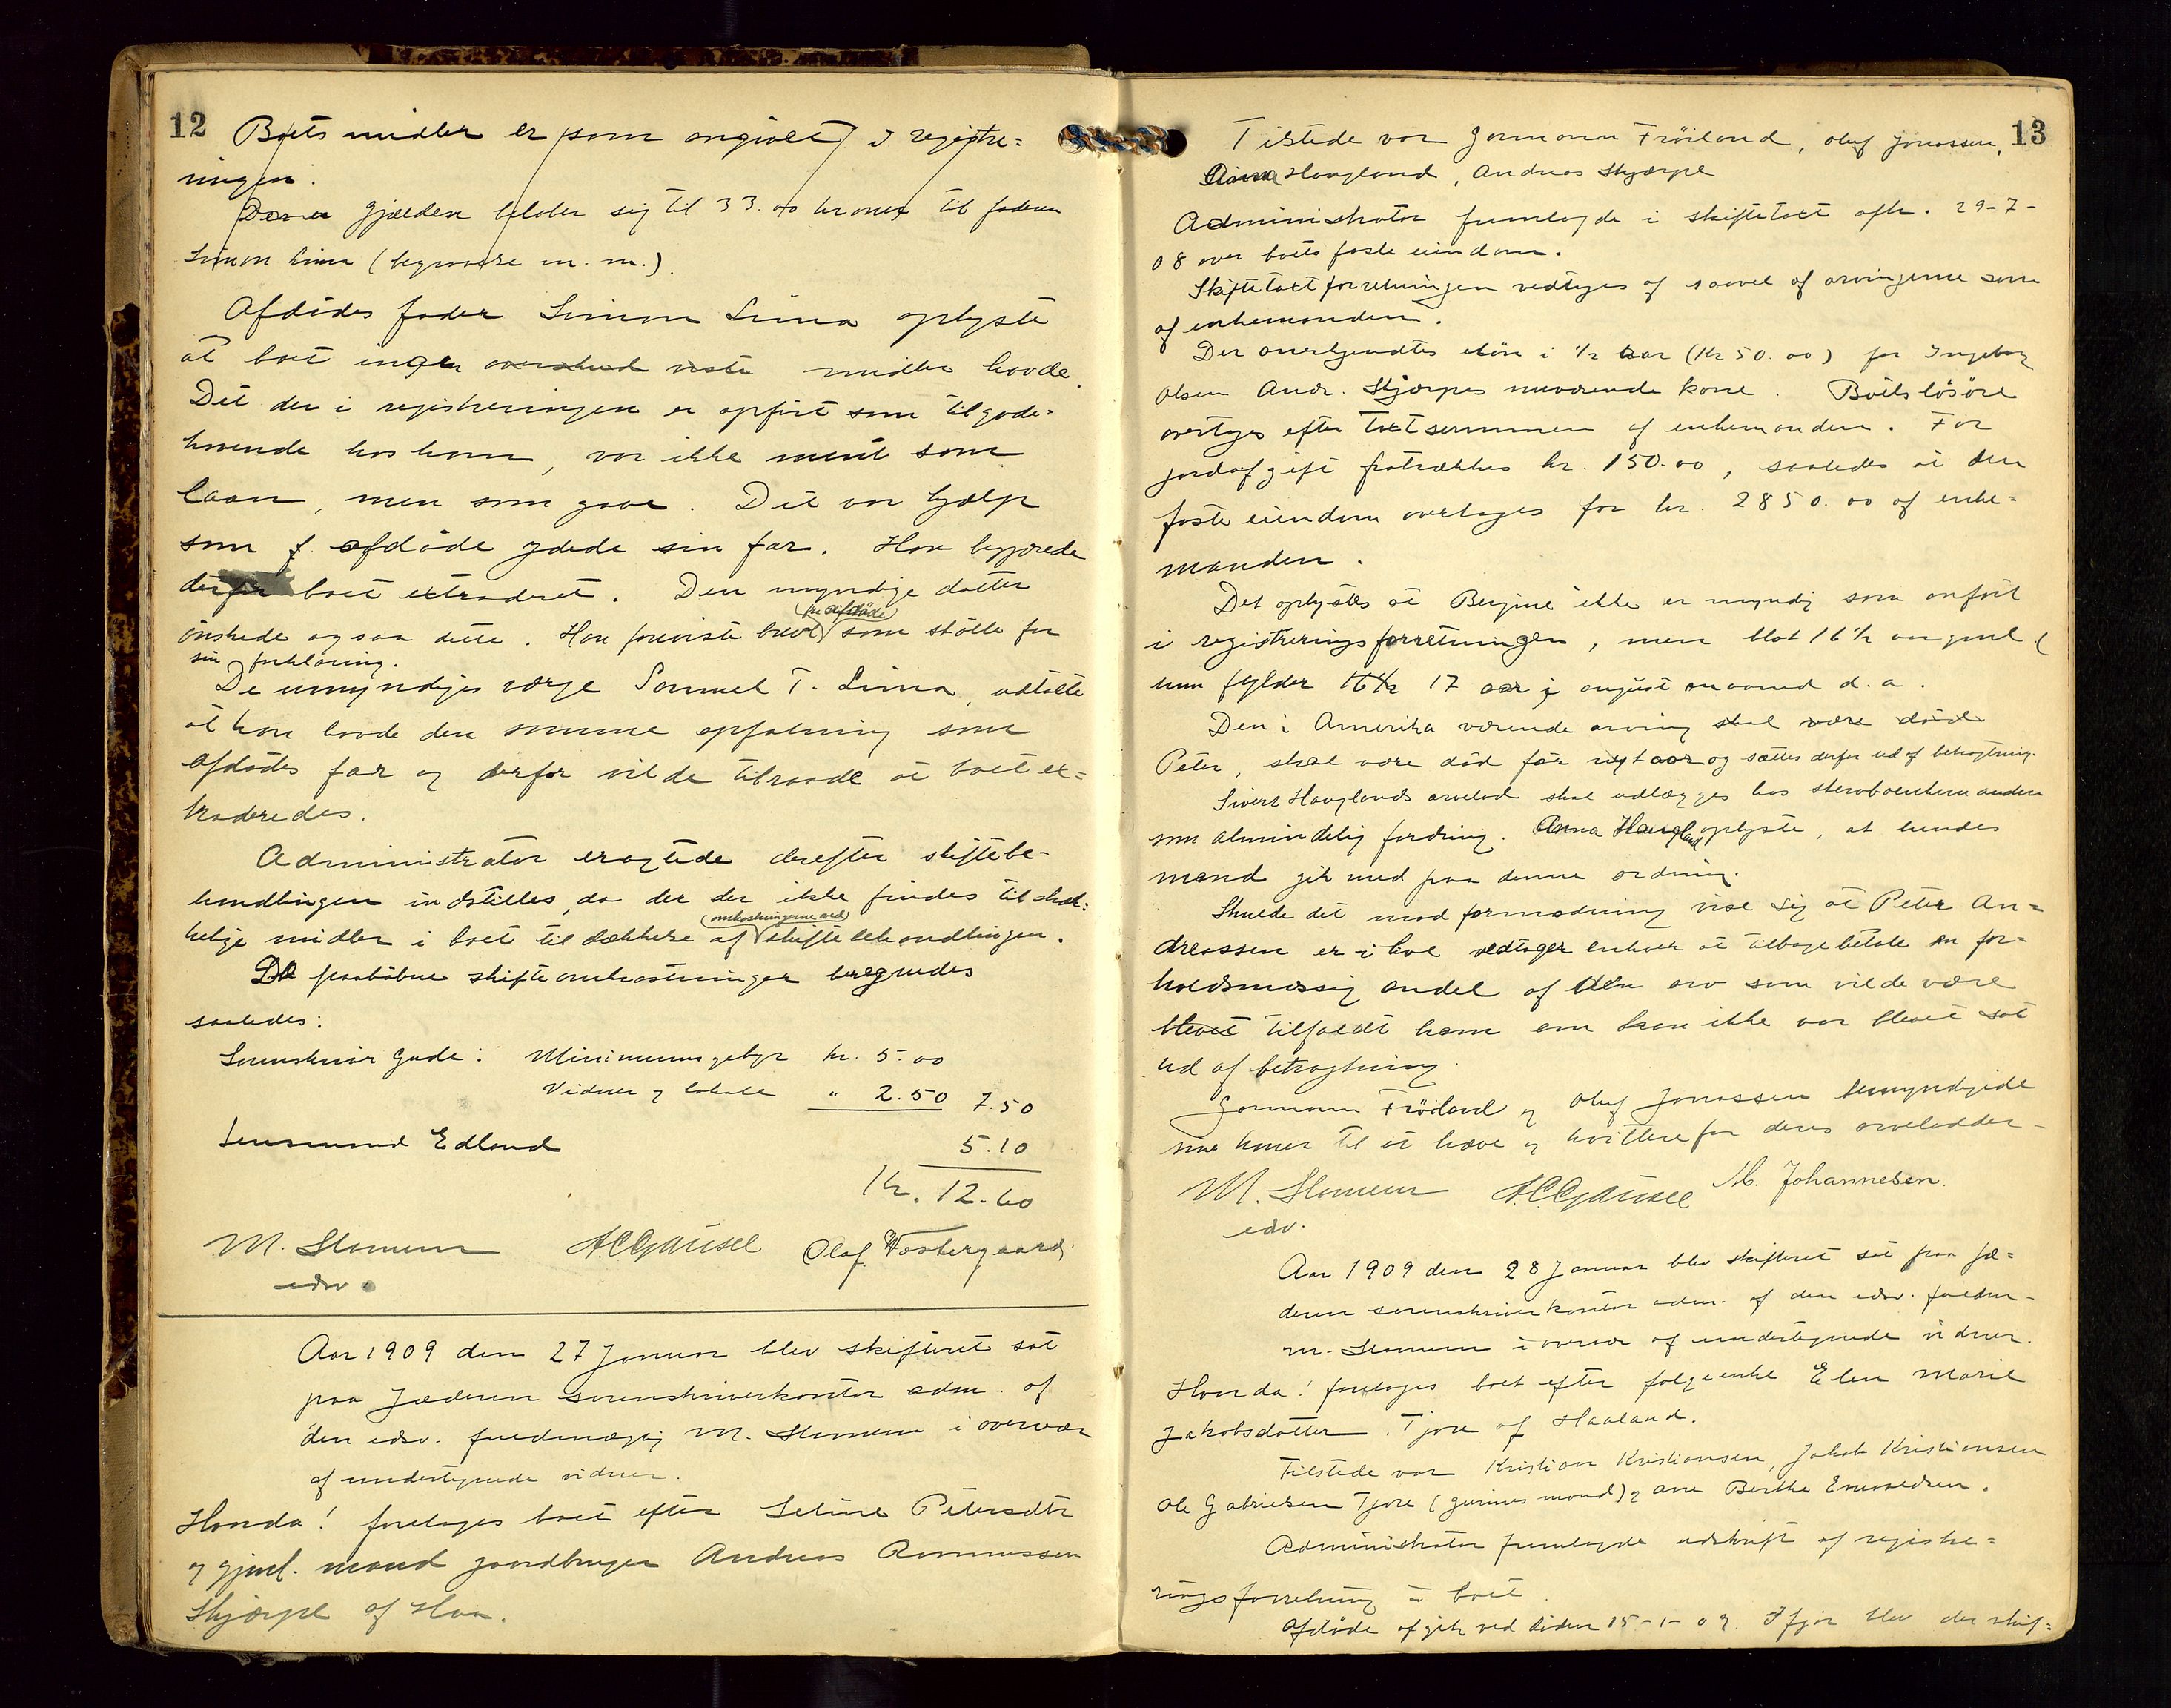 12
Boets midler er som angivet i registre=
ringen.
Der er gjælden beløber sig til 33.00 kroner til faderen
Simon Lima (begravelse m. m.).
Afdødes fader Simon Lima oplyste
at boet ingen overskud viste midler havde.
Det der i registreringen er opført som tilgode=
havende hos ham, var ikke ment som
laan, men som gave. Det var hjælp
som f. afdøde ydede sin far. Han begjærede
derfor boet extraderet. Den myndige datter
(fra afdøde)
ønskede ogsaa dette. Han foreviste brev som støtte for
sin forklaring.
De umyndiges værge Samuel T. Lima udtalte
at han havde den samme opfatning som
afdødes far og derfor vilde tilraade at boet ex=
traderedes.
Administrator eragtede derefter skiftebe-
handlingen indstilles, da der der ikke findes tilstræk=
(omkostningerne ved)
kelige midler i boet til dækkelse af skiftebehandlingen.
De paaløbne skifteomkostninger beregnedes
saaledes:
Sorenskriver Gude: Minimumsgebyr kr. 5.00
Vidner og lokale " 2.50 7.50
Lensmand Edland 5.10
Kr. 12.60
M. Slomem A.C. Gausel Olaf Westergaard
edsv.
Aar 1909 den 27 Januar blev skifteret sat
paa Jæderen sorenskriverkontor adm. af
den edsv. fuldmægtig M. Slomem i overvær
af undertegnede vidner.
Hvorda! foretoges boet efter Seline Petersdtr
og gjenl. mand gaardbruger Andreas Rasmussen
Skjærpe af Haa.
13
Tilstede var Gormann Frøiland, Oluf Jonassen,
Anna Haugland, Andreas Skjærpe
Administrator fremlagde i skiftetaxt afh. 29-7-
08 over boets faste eiendom.
Skiftetaxtforretningen vedtages af saavel af arvingerne som
af enkemanden.
Der anerkjendtes etløn i 1/2 aar (Kr 50.00) for Ingeborg
Olsen Andr. Skjærpes nuværende kone. Boets løsøre
overtages efter taxtsummen af enkemanden. For
jordafgift fratrækkes kr. 150.00, saaledes at den
faste eiendom overtages for kr. 2850.00 af enke=
manden.
Det oplystes at Bergine ikke er myndig som anført
i registreringsforretningen, men blot 16 1/2 aar gml. (
hun fylder 16 1/2 17 aar i august maaned d.a.
Den i Amerika værende arving skal være død
Peter, skal være død før nyt aar og sættes derfor ud af betragtning.
Sivert Hauglands arvelod skal udlægges hos stervboenkemanden
som almindelig fordring. Anna Haugland oplyste, at hendes
mand gik med paa denne ordning.
Skulde det mod formodning vise sig at Peter An=
dreassen er i live vedtager enhver at tilbagebetale en for=
holdsmæssig andel af den arv som vilde være
blevet tilfaldt ham om han ikke var blevet sat
ud af betragtning.
Gormann Frøiland og Oluf Jonassen bemyndigede
sine koner til at hæve og kvittere for deres arvelodder-
M. Slomem A.C. Gausel M. Johannesen.
edsv.
Aar 1909 den 28 Januar blev skifteret sat paa Jæ=
deren sorenskriverkontor adm. af den edsv. fuldm-
M. Slomem i overvær af undertegnede vidner.
Hvorda! foretoges boet efter følgeenke Elen Marie
Jakobsdatter Tjøre af Haaland.
Tilstede var Kristian Kristiansen, Jakob Kristiansen
Ole Gabrielsen Tjøre (gunnes mand) og Ane Berthe Enevoldsen.
Administrator fremlagde udskrift af registre=
ringsforretning i boet.
Afdøde afgik ved døden 15-1-09. Ifjor blev der skif=